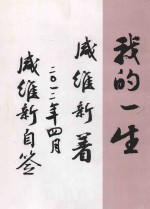 我的一生
威维新著
二〇一二年四月
威维新自签